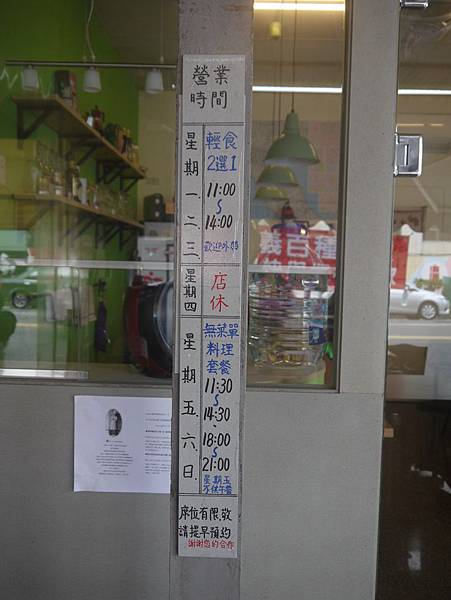 營業
時間
星期一.二.三
輕食
2選1
11:00
~
14:00
歡迎外帶
星期四
店休
星期五.六.日
無菜單
料理
套餐
11:30
~
14:30
、
18:00
~
21:00
星期五
不供午餐
座位有限,敬
請提早預約
謝謝您的合作